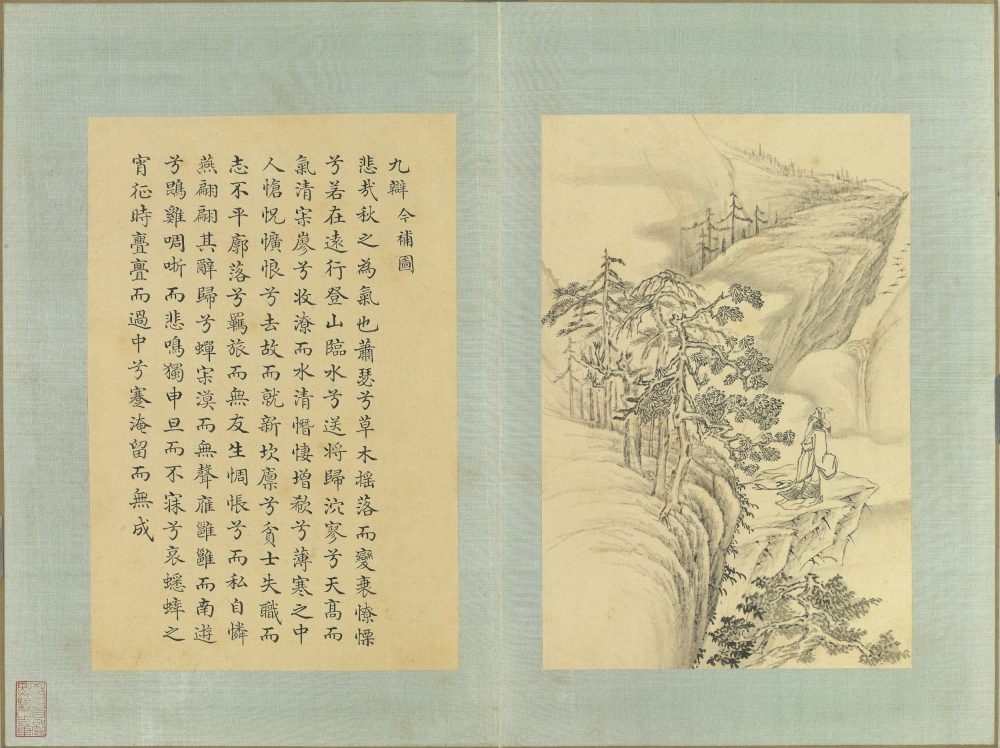 九辯 今補圖
悲哉秋之為氣也蕭瑟兮草木摇落而變衰憭慄
兮若在遠行登山臨水兮送將歸泬寥兮天高而
氣清寂寥兮收潦而水清憯悽增欷兮薄寒之中
人愴怳懭悢兮去故而就新坎廪兮貧士失職而
志不平廓落兮羈旅而無友生惆悵兮而私自憐
燕翩翩其辭歸兮蟬寂漠而無聲雁雝雝而南遊
兮鵾雞啁哳而悲鳴獨申旦而不寐兮哀蟋蟀之
宵征時亹亹而過中兮蹇淹留而無成